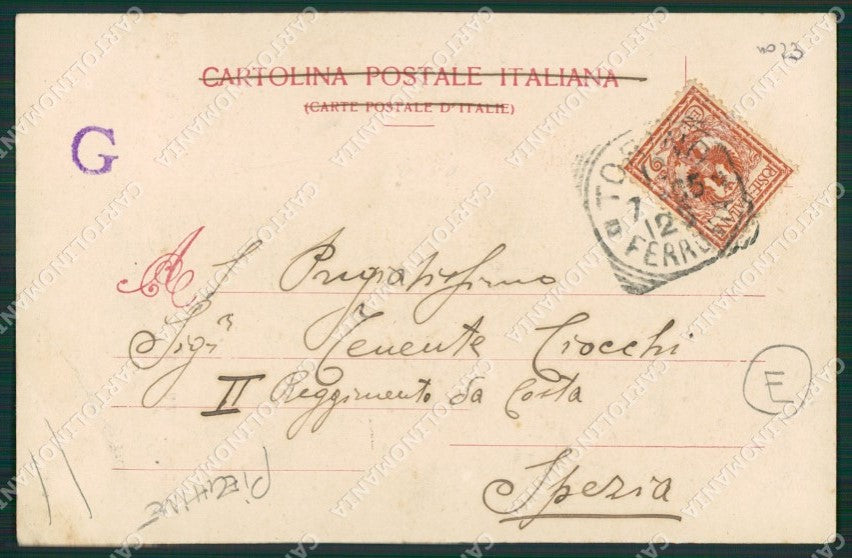 no 23
CARTOLINA POSTALE ITALIANA
(CARTE POSTALE D'ITALIE)
G
TORINO
7
12
FERROVIA
POSTE ITALIANE
A S Pregiatissimo
Sigr Tenente Ciocchi
II Reggimento da Costa
Spezia
E
CARTOLINOMANIA